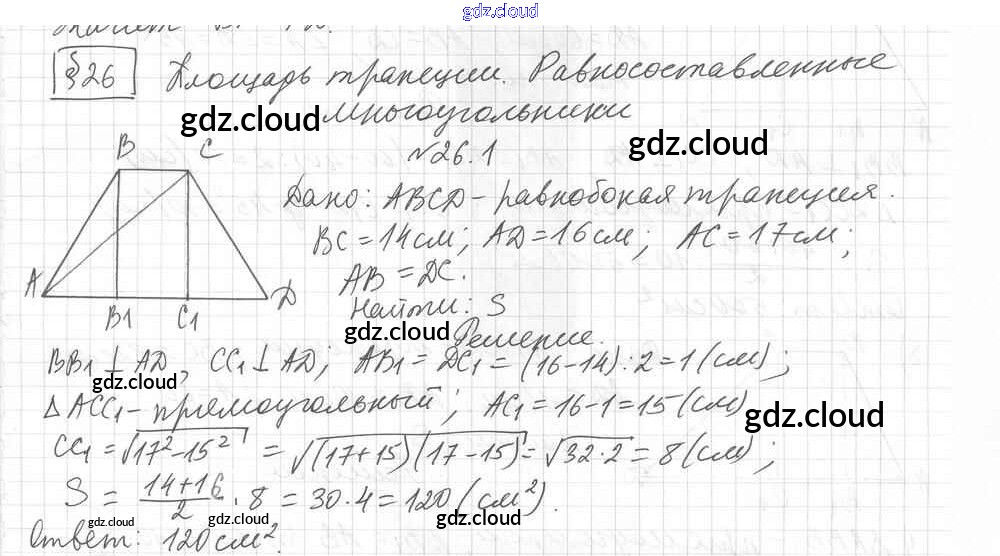 gdz.cloud
значит
§26 Площадь трапеции. Равносоставленные
многоугольники
gdz.cloud gdz.cloud
№26.1
B C
Дано: ABCD - равнобокая трапеция.
BC = 14 см; AD = 16 см; AC = 17 см;
AB = DC.
A D
B1 C1
Найти: S
gdz.cloud
Решение.
BB1 ⊥ AD, CC1 ⊥ AD; AB1 = DC1 = (16-14) : 2 = 1 (см);
gdz.cloud
△ ACC1 - прямоугольный; AC1 = 16-1 = 15 (см)
gdz.cloud
CC1 = √(17² - 15²) = √((17+15)(17-15)) = √(32·2) = 8 (см);
S = (14+16)/2 · 8 = 30·4 = 120 (см²).
gdz.cloud gdz.cloud gdz.cloud
Ответ: 120 см².